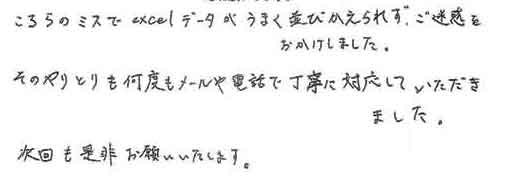 こちらのミスで excelデータがうまく並びかえられず、ご迷惑を
おかけしました。
そのやりとりも何度もメールや電話で丁寧に対応していただき
ました。
次回も是非お願いいたします。